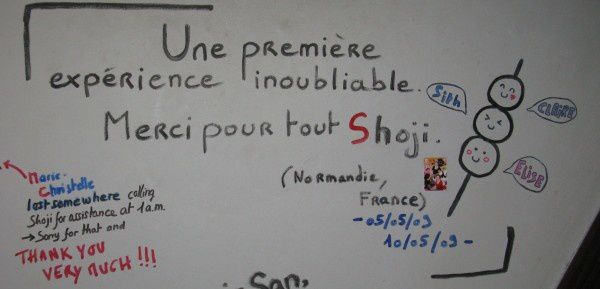 Une première
expérience inoubliable.
Merci pour tout Shoji.
(Normandie,
France)
- 05/05/09
10/05/09 -
Siph
CLAIRE
Elise
Marie-
Christelle
lost somewhere calling
Shoji for assistance at 1a.m.
→ Sorry for that and
THANK YOU
VERY MUCH !!!
San,